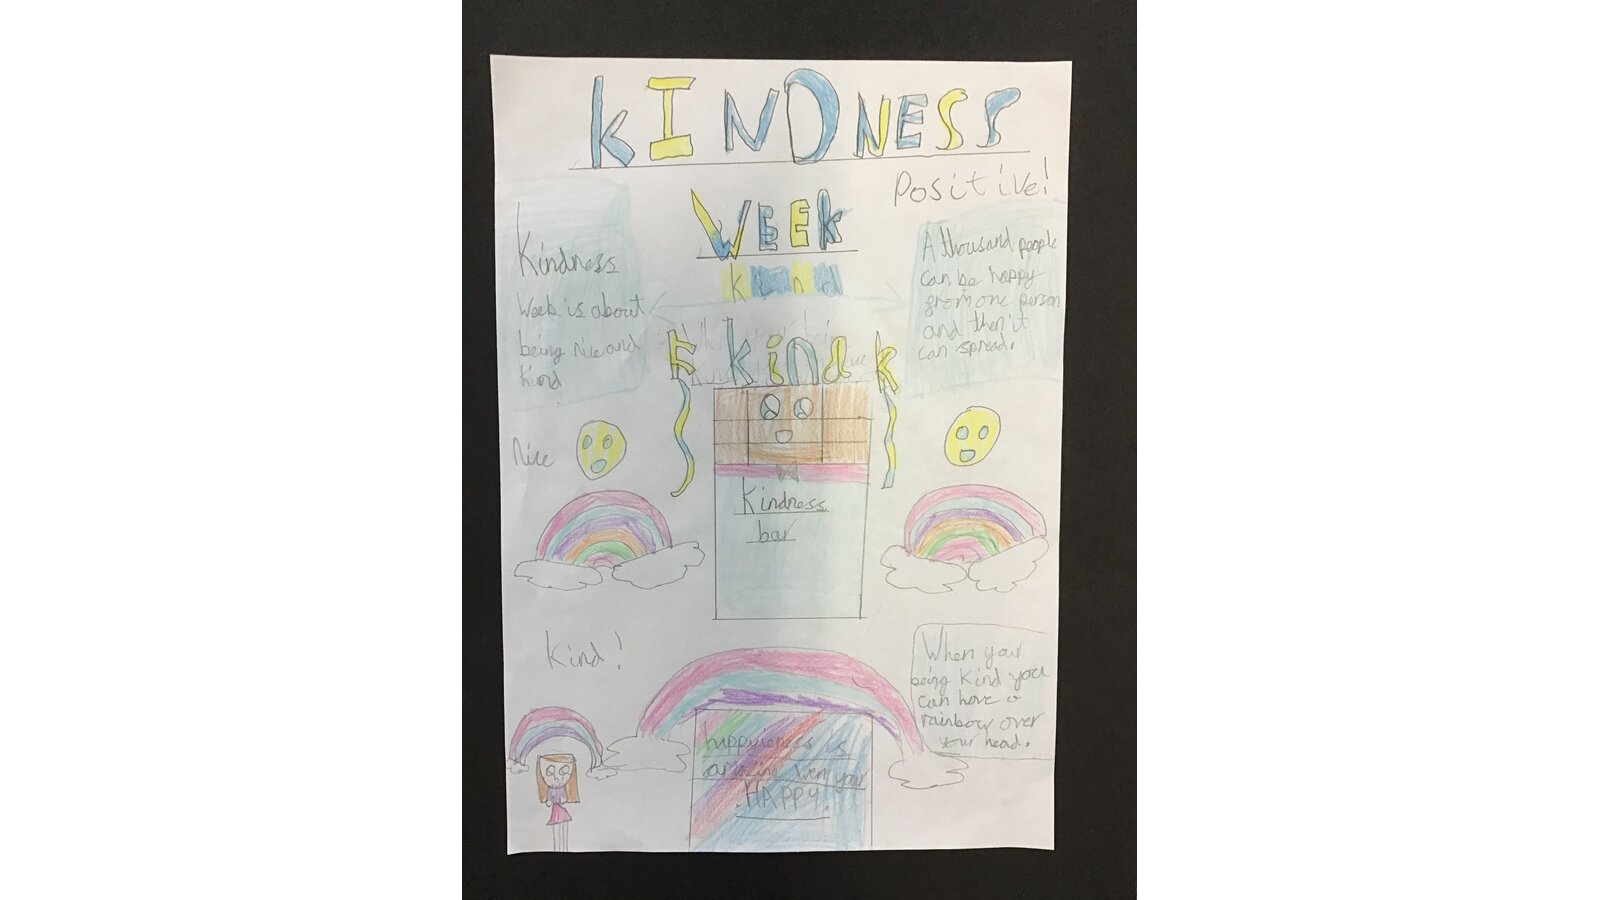 KINDNESS
Positive!
WEEK
kind
Kindness
Week is about
being nice and
kind
A thousand people
can be happy
from one person
and then it
can spread.
kind k
Nice
Kindness
bar
Kind!
When your
being kind you
can have a
rainbow over
your head.
happyieness is
amazing wen your
HAPPY.